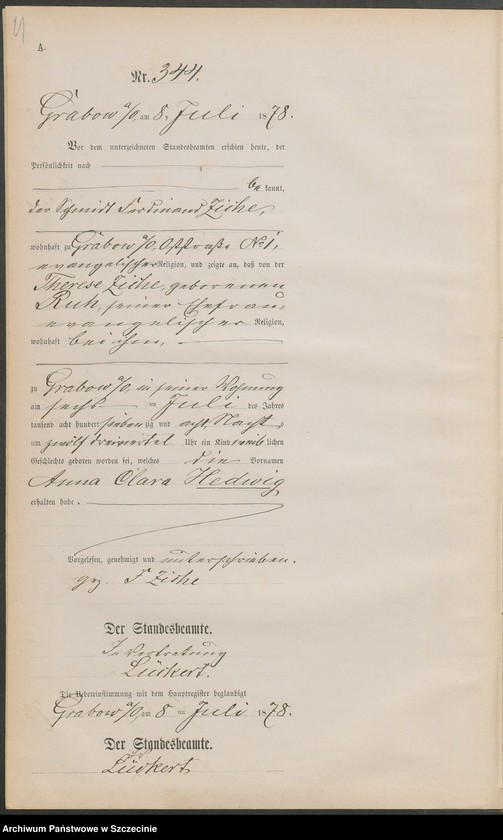 A.
Nr. 344.
Grabow a/O, am 8. Juli 1878.
Vor dem unterzeichneten Standesbeamten erschien heute, der
Persönlichkeit nach
be kannt,
der Schmidt Ferdinand Zithe,
wohnhaft zu Grabow a/O, Oststraße No 1,
evangelischer Religion, und zeigte an, daß von der
Therese Zithe, geborenen
Ruh, seiner Ehefrau,
evangelischer Religion,
wohnhaft bei ihm,
zu Grabow a/O, in seiner Wohnung
am sechs ten Juli des Jahres
tausend acht hundert sieben zig und acht, Nachts
um zwölf dreiviertel Uhr ein Kind weib lichen
Geschlechts geboren worden sei, welches die Vornamen
Anna Clara Hedwig
erhalten habe.
Vorgelesen, genehmigt und unterschrieben.
gez. F Zithe
Der Standesbeamte.
In Vertretung
Lückert.
Die Uebereinstimmung mit dem Hauptregister beglaubigt
Grabow a/O, am 8 ten Juli 1878.
Der Standesbeamte.
Lückert
Archiwum Państwowe w Szczecinie